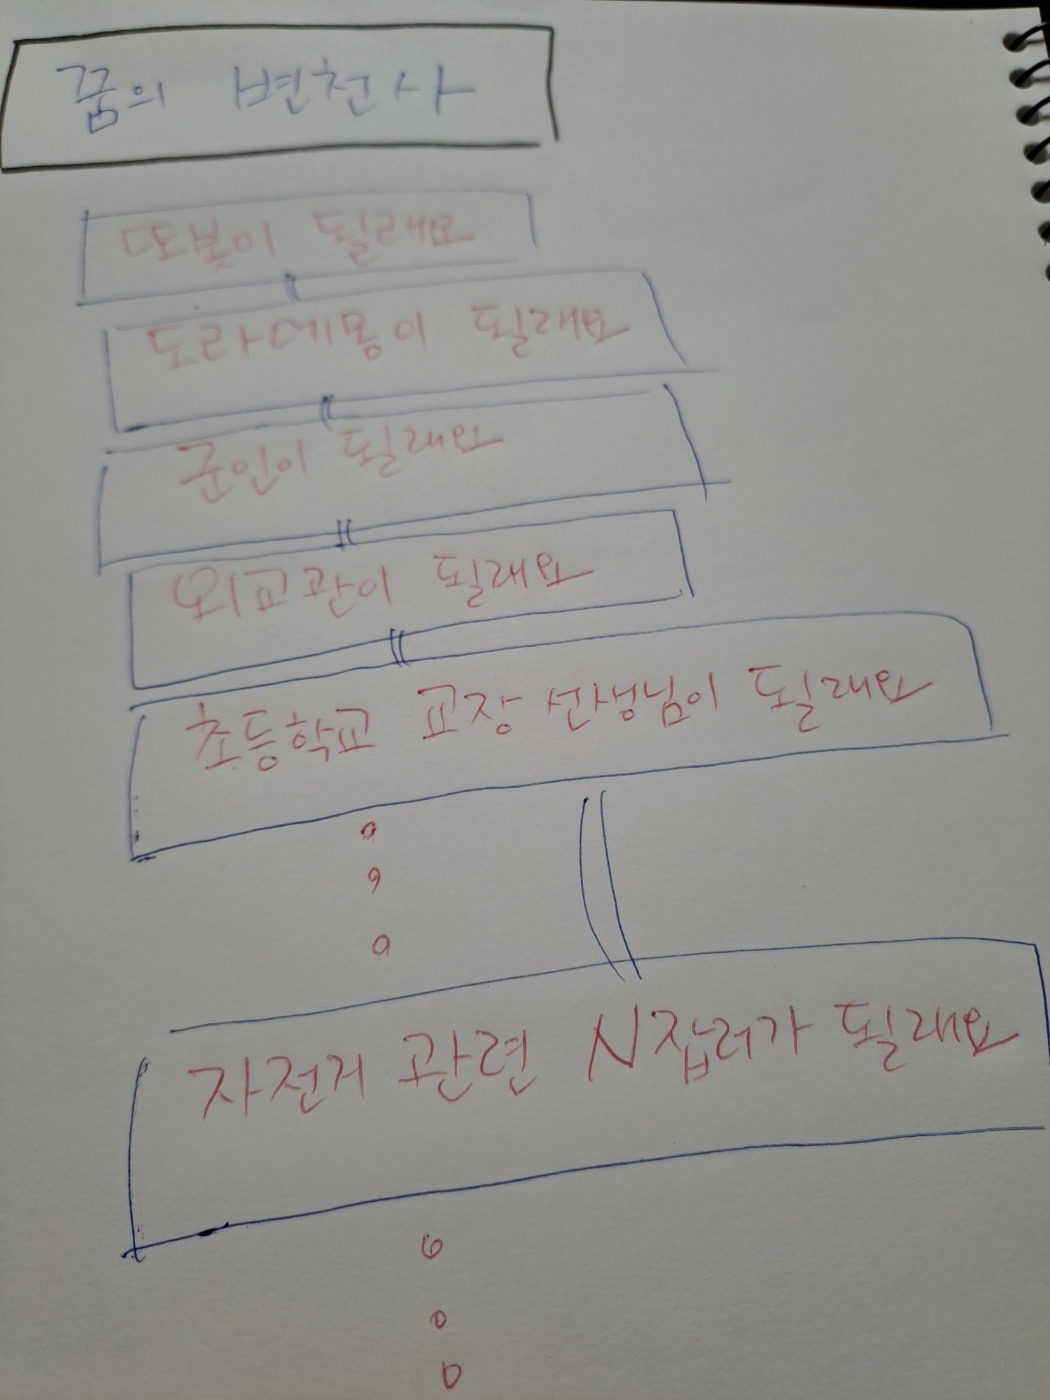 꿈의 변천사
또봇이 될래요
도라에몽이 될래요
군인이 될래요
외교관이 될래요
초등학교 교장 선생님이 될래요
자전거 관련 N잡러가 될래요